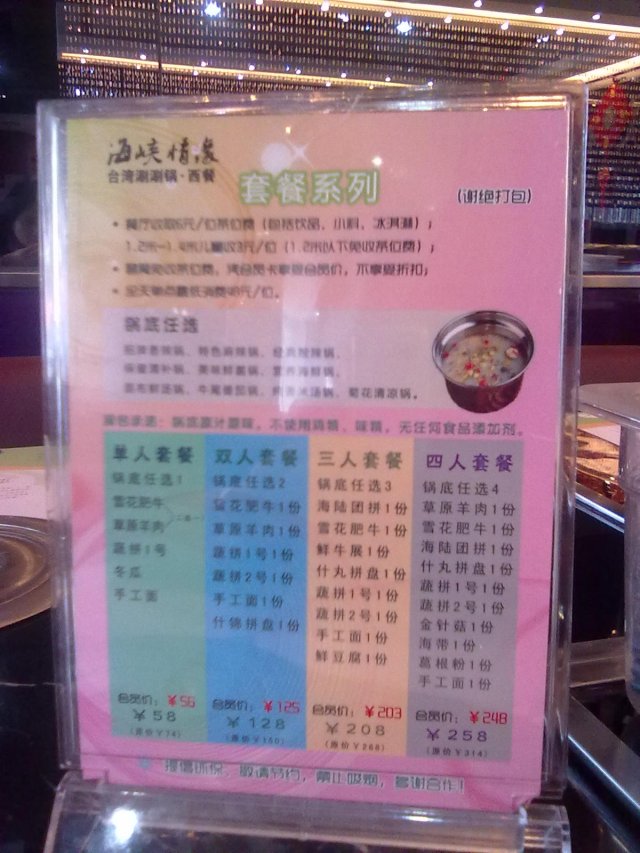 海峡情缘
台湾涮涮锅·西餐
套餐系列
(谢绝打包)
餐厅收取6元/位茶位费（包括饮品、小料、冰淇淋）；
1.2米-1.4米儿童收3元/位（1.2米以下免收茶位费）；
免收茶位费，凭会员卡享受会员价，不享受折扣；
全天单点最低消费48元/位。
锅底任选
招牌香辣锅、特色麻辣锅、经典酸辣锅、
保健滋补锅、美味鲜菌锅、营养海鲜锅、
锅、菊花清凉锅。
锅底原汁原味，不使用鸡精、味精，无任何食品添加剂。
单人套餐
锅底任选1
雪花肥牛
草原羊肉
蔬拼1号
冬瓜
手工面
会员价：￥56
￥58
（原价￥74）
双人套餐
锅底任选2
雪花肥牛1份
草原羊肉1份
蔬拼1号1份
蔬拼2号1份
手工面1份
什锦拼盘1份
会员价：￥125
￥128
（原价￥160）
三人套餐
锅底任选3
海陆团拼1份
雪花肥牛1份
鲜牛展1份
什丸拼盘1份
蔬拼1号1份
蔬拼2号1份
手工面1份
鲜豆腐1份
会员价：￥203
￥208
（原价￥268）
四人套餐
锅底任选4
草原羊肉1份
雪花肥牛1份
海陆团拼1份
什丸拼盘1份
蔬拼1号1份
蔬拼2号1份
金针菇1份
海带1份
葛根粉1份
手工面1份
会员价：￥248
￥258
（原价￥314）
提倡环保，敬请节约，禁止吸烟，多谢合作！